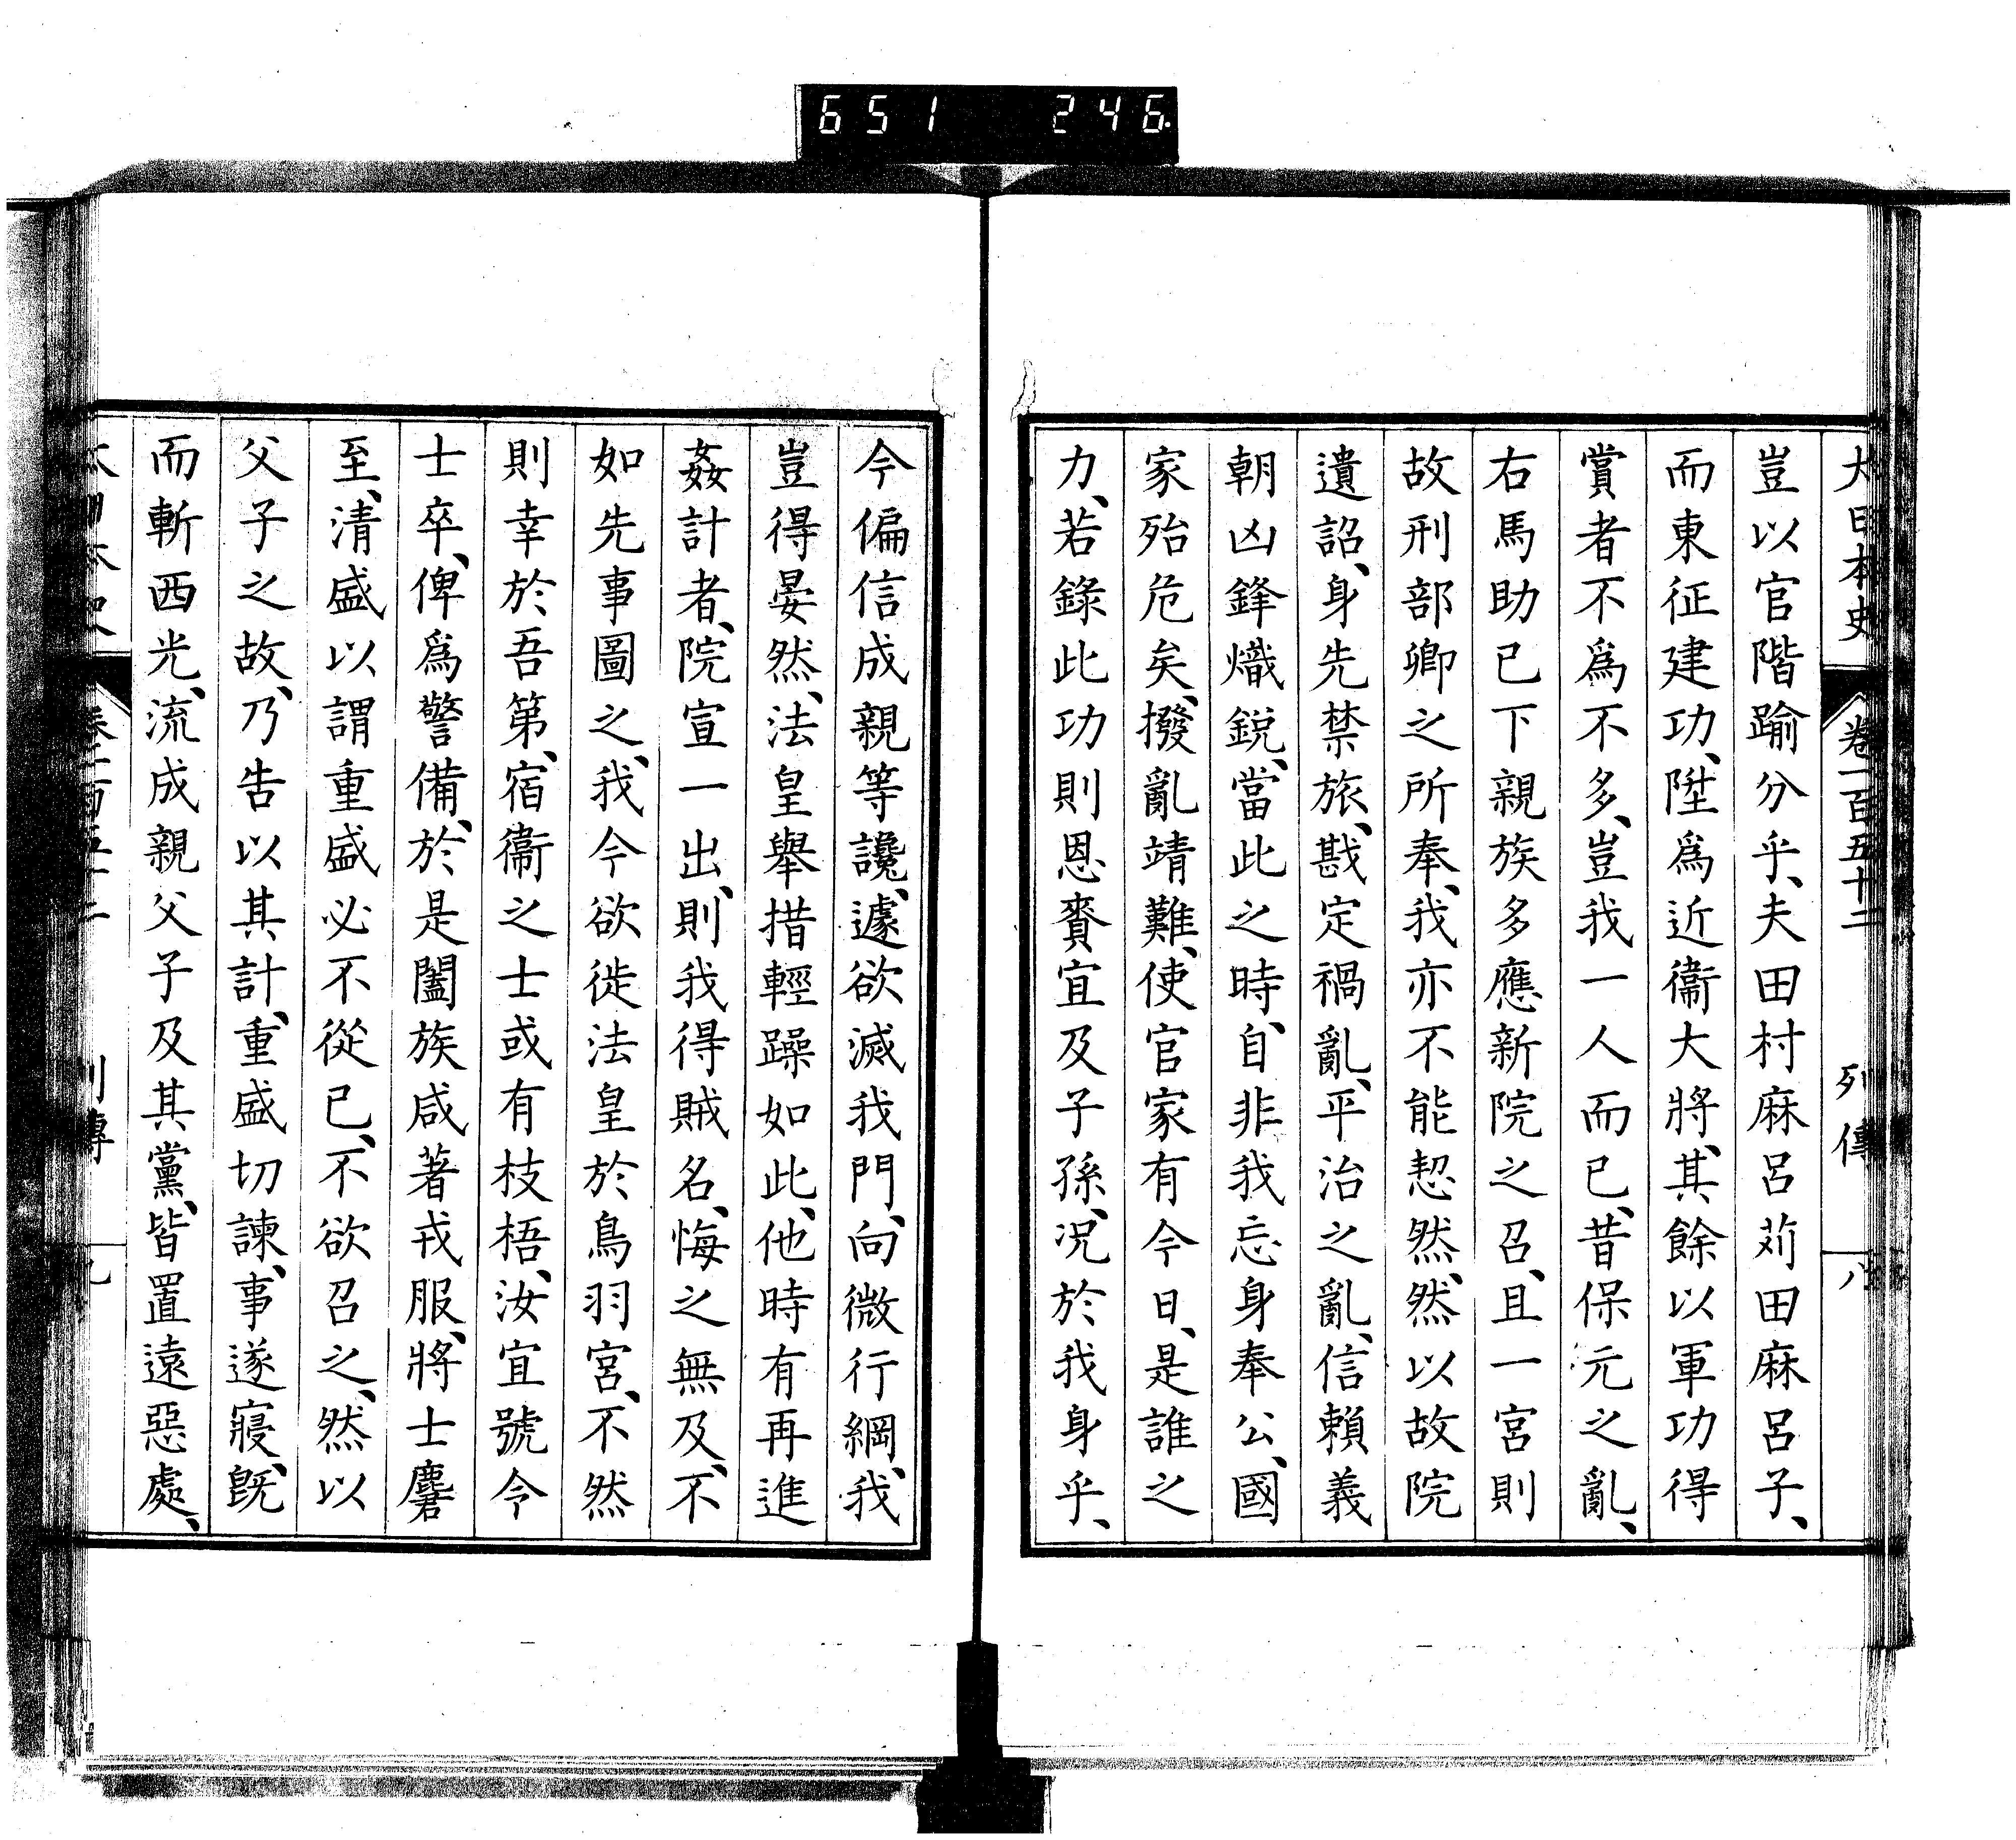 651 246
大日本史 卷一百五十二 列傳 八
豈以官階踰分乎、夫田村麻呂苅田麻呂子、
而東征建功、陞爲近衞大將、其餘以軍功得
賞者不爲不多、豈我一人而已、昔保元之亂、
右馬助已下親族多應新院之召、且一宮則
故刑部卿之所奉、我亦不能恝然、然以故院
遺詔、身先禁旅、戡定禍亂、平治之亂、信賴義
朝凶鋒熾鋭、當此之時、自非我忘身奉公、國
家殆危矣、撥亂靖難、使官家有今日、是誰之
力、若錄此功則恩賚宜及子孫、况於我身乎、
今偏信成親等讒、遽欲滅我門、向微行綱、我
豈得晏然、法皇舉措輕躁如此、他時有再進
姦計者、院宣一出、則我得賊名、悔之無及、不
如先事圖之、我今欲徙法皇於鳥羽宮、不然
則幸於吾第、宿衞之士或有枝梧、汝宜號令
士卒、俾爲警備、於是闔族咸著戎服、將士麕
至、清盛以謂重盛必不從已、不欲召之、然以
父子之故、乃告以其計、重盛切諫、事遂寢、既
而斬西光、流成親父子及其黨、皆置遠惡處、
列傳 九